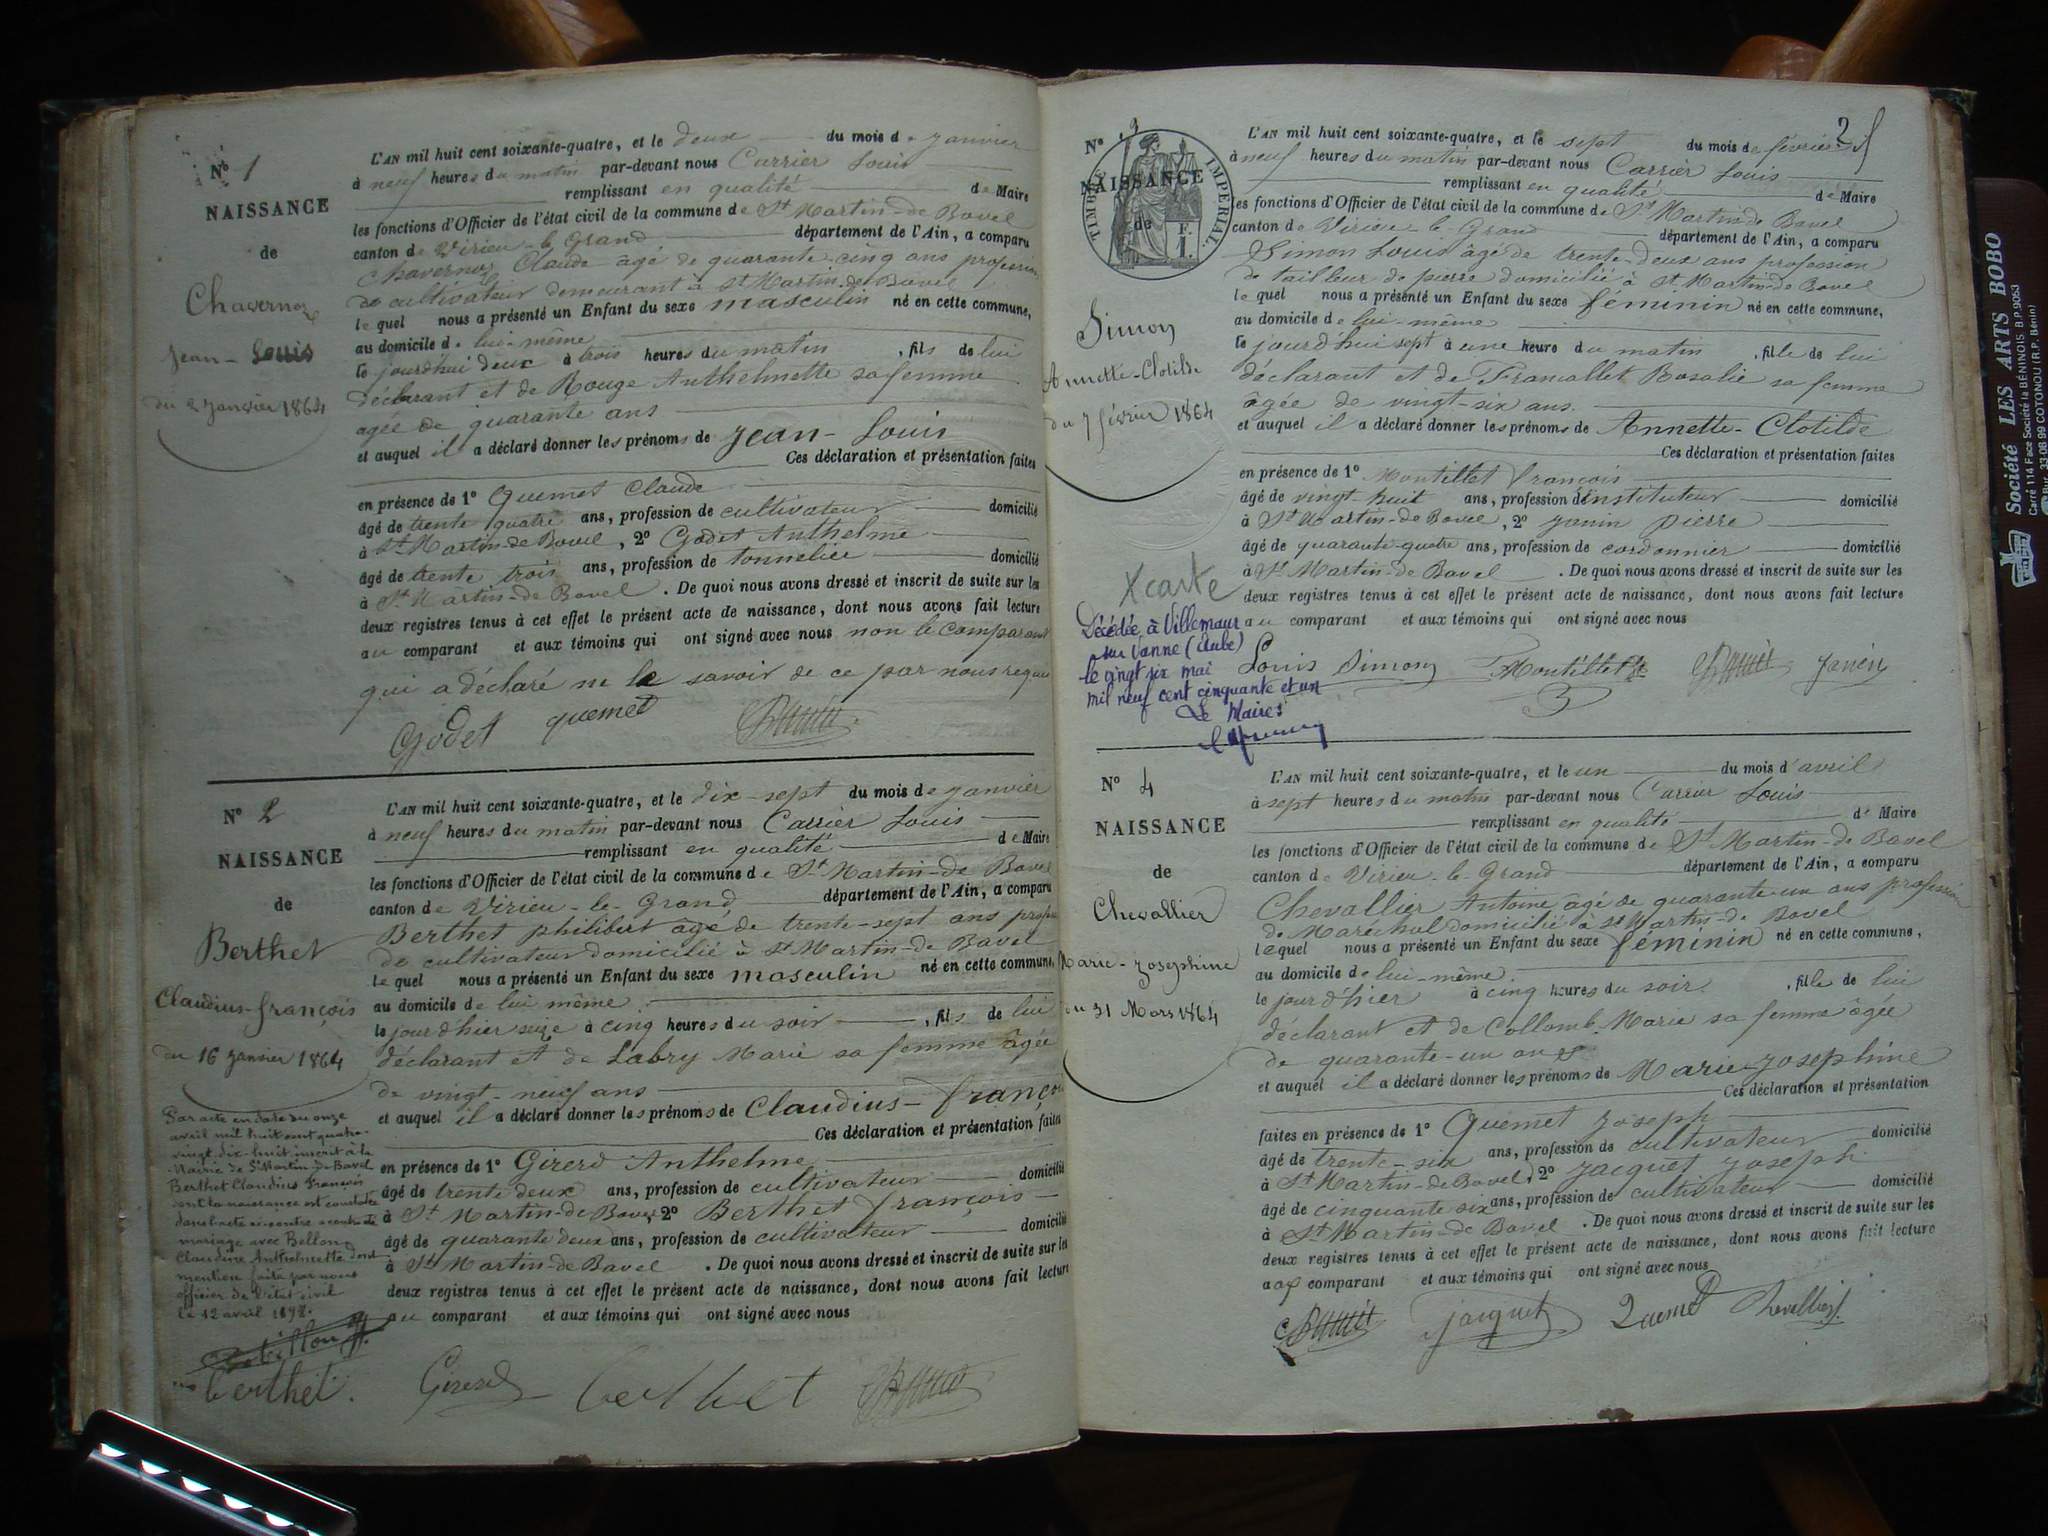 N° 1
NAISSANCE
de
Chavernoz
Jean-Louis
du 2 Janvier 1864
L'AN mil huit cent soixante-quatre, et le deux du mois de Janvier
à neuf heures du matin par-devant nous Carrier Louis
remplissant en qualité de Maire
les fonctions d'Officier de l'état civil de la commune de St Martin-de Bavel
canton de Virieu-le-Grand département de l'Ain, a comparu
Chavernoz Claude âgé de quarante-cinq ans profession
de cultivateur demeurant à St Martin-de Bavel
le quel nous a présenté un Enfant du sexe masculin né en cette commune,
au domicile de lui-même
le jourd'hui deux à trois heures du matin, fils de lui
déclarant et de Rouge Anthelmette sa femme
agée de quarante ans
et auquel il a déclaré donner les prénoms de Jean-Louis
Ces déclaration et présentation faites
en présence de 1° Quemet Claude
âgé de trente quatre ans, profession de cultivateur domicilié
à St Martin-de Bavel, 2° Godet Anthelme
âgé de trente trois ans, profession de tonnelier domicilié
à St Martin-de Bavel. De quoi nous avons dressé et inscrit de suite sur les
deux registres tenus à cet effet le présent acte de naissance, dont nous avons fait lecture
au comparant et aux témoins qui ont signé avec nous non le comparant
qui a déclaré ne le savoir de ce par nous requis
Godet quemet
N° 2
NAISSANCE
de
Berthet
Claudius-françois
du 16 Janvier 1864
Par acte en date du onze
avril mil huit cent quatre-
vingt-dix-huit inscrit à la
Mairie de St Martin-de-Bavel
Berthet Claudius François
dont la naissance est constatée
dans l'acte ci-contre a contracté
mariage avec Bellon
Claudine Anthelmette dont
mention faite par nous
officier de l'état civil
le 12 avril 1898.
berthet.
L'AN mil huit cent soixante-quatre, et le dix-sept du mois de Janvier
à neuf heures du matin par-devant nous Carrier Louis
remplissant en qualité de Maire
les fonctions d'Officier de l'état civil de la commune de St Martin-de Bavel
canton de Virieu-le-Grand département de l'Ain, a comparu
Berthet philibert âgé de trente-sept ans profession
de cultivateur domicilié à St Martin-de Bavel
le quel nous a présenté un Enfant du sexe masculin né en cette commune,
au domicile de lui même
le jour d'hier seize à cinq heures du soir, fils de lui
déclarant et de Labry Marie sa femme âgée
de vingt-neuf ans
et auquel il a déclaré donner les prénoms de Claudius-françois
Ces déclaration et présentation faites
en présence de 1° Girerd Anthelme
âgé de trente deux ans, profession de cultivateur domicilié
à St Martin-de Bavel, 2° Berthet françois
âgé de quarante deux ans, profession de cultivateur domicilié
à St Martin-de Bavel. De quoi nous avons dressé et inscrit de suite sur les
deux registres tenus à cet effet le présent acte de naissance, dont nous avons fait lecture
au comparant et aux témoins qui ont signé avec nous
Girerd berthet
2
N° 3
NAISSANCE
de
TIMBRE IMPERIAL.
F.
1.
Simon
Annette-Clotilde
du 7 février 1864
X carte
Décédée à Villemaur
sur Vanne (Aube)
le vingt six mai
mil neuf cent cinquante et un
Le Maire
L'AN mil huit cent soixante-quatre, et le sept du mois de février
à neuf heures du matin par-devant nous Carrier Louis
remplissant en qualité de Maire
les fonctions d'Officier de l'état civil de la commune de St Martin-de Bavel
canton de Virieu-le-Grand département de l'Ain, a comparu
Simon Louis âgé de trente-deux ans profession
de tailleur de pierre domicilié à St Martin-de Bavel
le quel nous a présenté un Enfant du sexe féminin né en cette commune,
au domicile de lui-même
le jourd'hui sept à une heure du matin, fille de lui
déclarant et de Francallet Rosalie sa femme
âgée de vingt-six ans.
et auquel il a déclaré donner les prénoms de Annette-Clotilde
Ces déclaration et présentation faites
en présence de 1° Montillet François
âgé de vingt huit ans, profession d'instituteur domicilié
à St Martin-de Bavel, 2° Janin pierre
âgé de quarante-quatre ans, profession de cordonnier domicilié
à St Martin-de Bavel. De quoi nous avons dressé et inscrit de suite sur les
deux registres tenus à cet effet le présent acte de naissance, dont nous avons fait lecture
au comparant et aux témoins qui ont signé avec nous
Louis Simon Montillet Janin
N° 4
NAISSANCE
de
Chevallier
Marie-Josephine
du 31 Mars 1864
L'AN mil huit cent soixante-quatre, et le un du mois d'avril
à sept heures du matin par-devant nous Carrier Louis
remplissant en qualité de Maire
les fonctions d'Officier de l'état civil de la commune de St Martin-de Bavel
canton de Virieu-le-Grand département de l'Ain, a comparu
Chevallier Antoine âgé de quarante-un ans profession
de Maréchal domicilié à St Martin-de Bavel
lequel nous a présenté un Enfant du sexe féminin né en cette commune,
au domicile de lui-même
le jour d'hier à cinq heures du soir, fille de lui
déclarant et de Collomb Marie sa femme âgée
de quarante-un ans
et auquel il a déclaré donner les prénoms de Marie-Josephine
Ces déclaration et présentation
faites en présence de 1° Quemet Joseph
âgé de trente-six ans, profession de cultivateur domicilié
à St Martin-de Bavel, 2° Jacquet Joseph
âgé de cinquante six ans, profession de cultivateur domicilié
à St Martin-de Bavel. De quoi nous avons dressé et inscrit de suite sur les
deux registres tenus à cet effet le présent acte de naissance, dont nous avons fait lecture
au comparant et aux témoins qui ont signé avec nous
Jacquet Quemet Chevallier
Société LES ARTS BOBO
Carré 114 Face Société la BÉNINOIS B.P. 9053
33-08 99 COTONOU (R.P. Bénin)